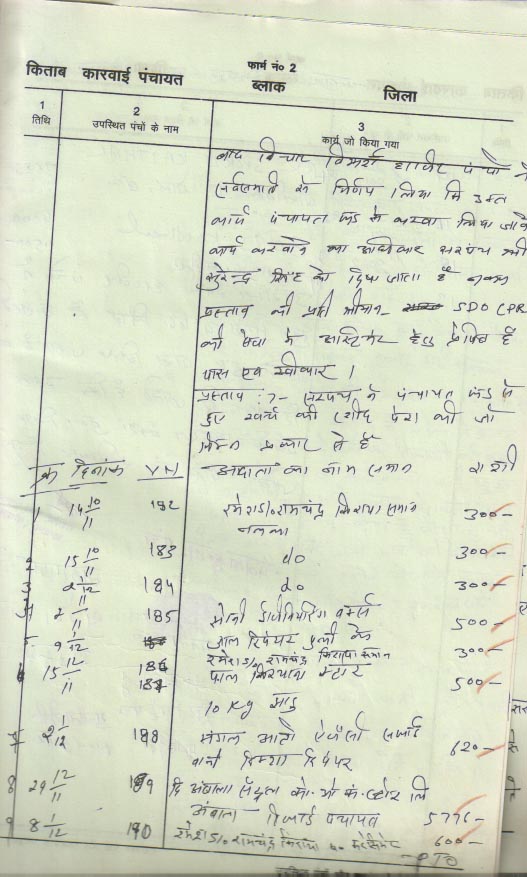 फार्म नं० 2
किताब कारवाई पंचायत ब्लाक जिला
1 2 3
तिथि उपस्थित पंचों के नाम कार्य जो किया गया
बाद विचार विमर्श हाजिर पंचों ने
सर्वसम्मति से निर्णय लिया कि उक्त
कार्य पंचायत फंड से करवा लिया जावे
कार्य करवाने का अधिकार सरपंच श्री
सुरेन्द्र सिंह को दिया जाता है नकल
प्रस्ताव की प्रति श्रीमान SDO CPR
की सेवा में आस्टिमेट हेतु प्रेषित है
पास एवं स्वीकार ।
प्रस्ताव :7- सरपंच ने पंचायत फंड से
हुए खर्च की रशीद पेश की जो
निम्न प्रकार से है
क्र दिनांक VN अदाता का नाम समान राशी
1 14 10/11 182 रमेश S/o रामचंद्र किराया समान 300-
2 15 10/11 183 do 300-
3 2 1/12 184 do 300-
4 185 इंजिनियरिंग वर्क्स 500-
5 9 1/12 रिपेयर 300-
रमेश S/o रामचंद्र किराया समान
6 15 12/11 187 किरयाना स्टोर 500-
10 Kg
7 2 1/12 188 मंगल आटो ऐजेंसी 620-
रिपेयर
8 29 12/11 189 दि अंबाला सैंट्रल को. ओ. कं. स्टोर लि
अंबाला पंचायत 5776-
9 8 1/12 190 रमेश S/o रामचंद्र किराया 600-
-PTO